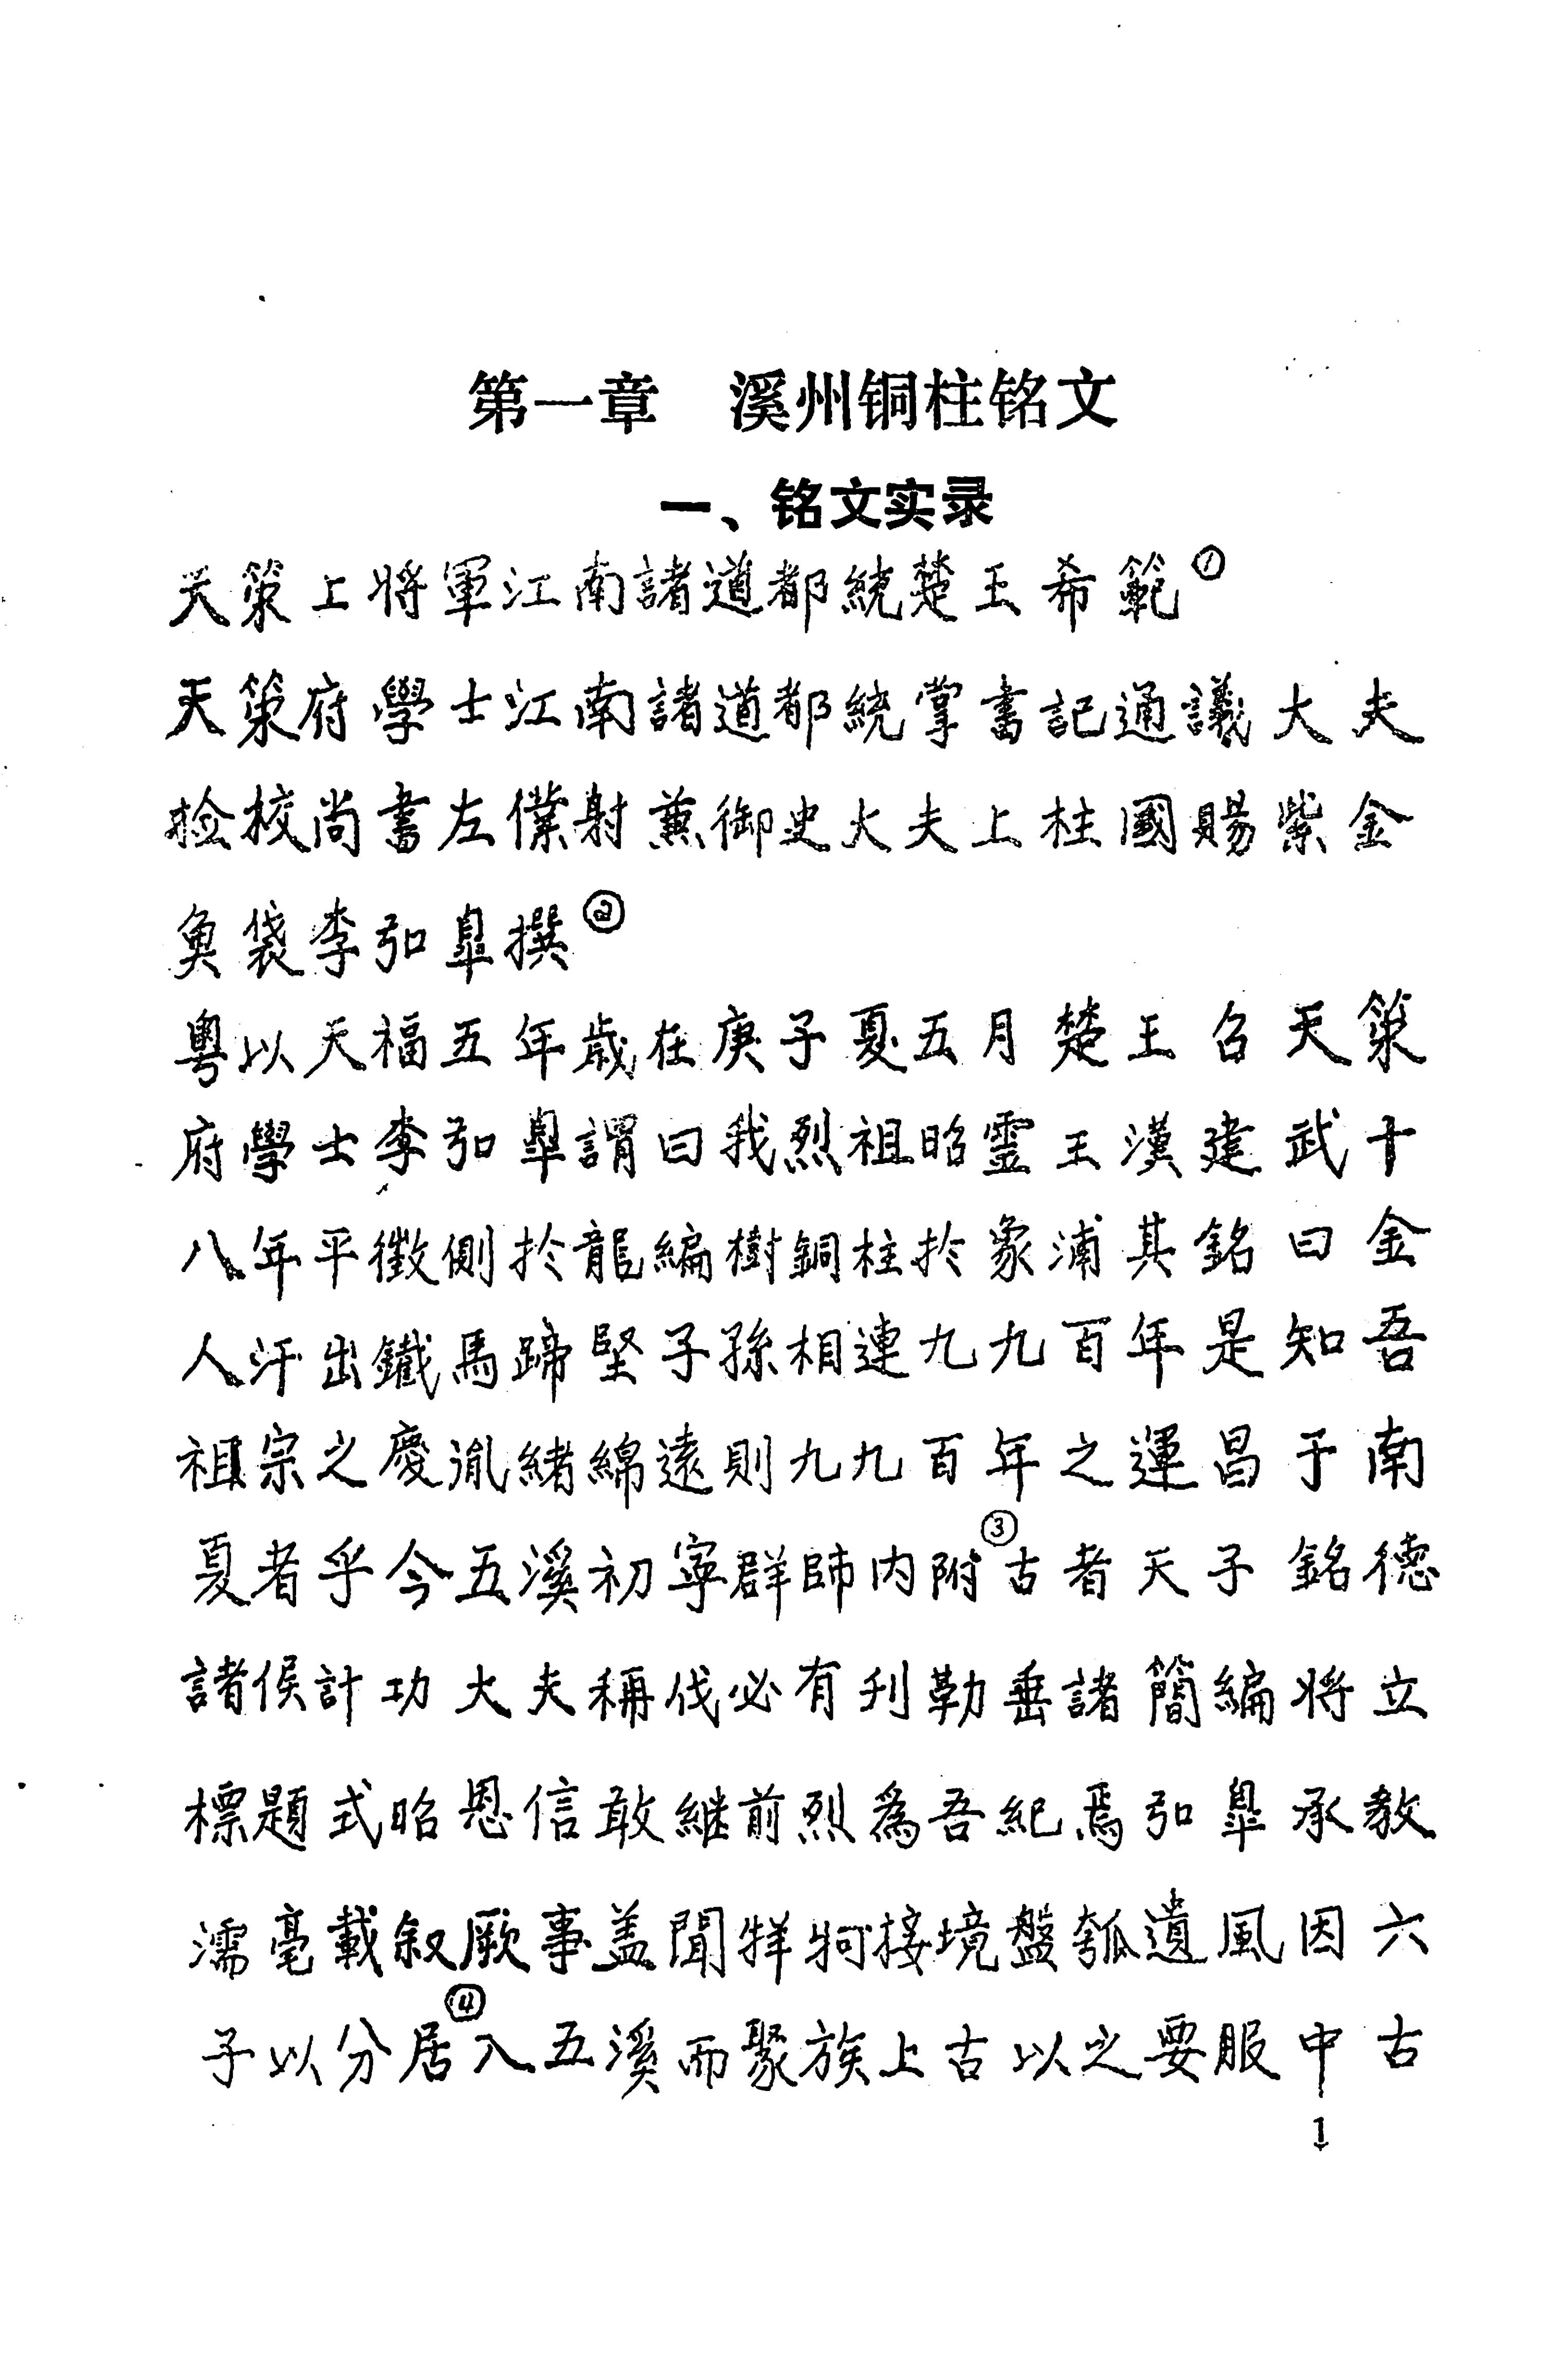 第一章　溪州铜柱铭文
一、铭文实录
天策上將軍江南諸道都統楚王希範①
天策府學士江南諸道都統掌書記通議大夫
檢校尚書左僕射兼御史大夫上柱國賜紫金
魚袋李弘皐撰②
粵以天福五年歲在庚子夏五月楚王召天策
府學士李弘皐謂曰我烈祖昭靈王漢建武十
八年平徵側於龍編樹銅柱於象浦其銘曰金
人汗出鐵馬蹄堅子孫相連九九百年是知吾
祖宗之慶胤緒綿遠則九九百年之運昌于南
夏者乎今五溪初寧群師内附③古者天子銘德
諸侯計功大夫稱伐必有刊勒垂諸簡編將立
標題式昭恩信敢繼前烈為吾紀焉弘皐承教
濡毫載叙厥事盖聞牂牁接境盤瓠遺風因六
子以分居④入五溪而聚族上古以之要服中古
1